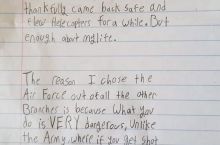 thankfully came back safe and
flew Helecopters for a while. But
enough about my life.
The reason I chose the
Air Force out of all the other
Branches is because What you
do is VERY dangerous, Unlike
the Army where if you get shot